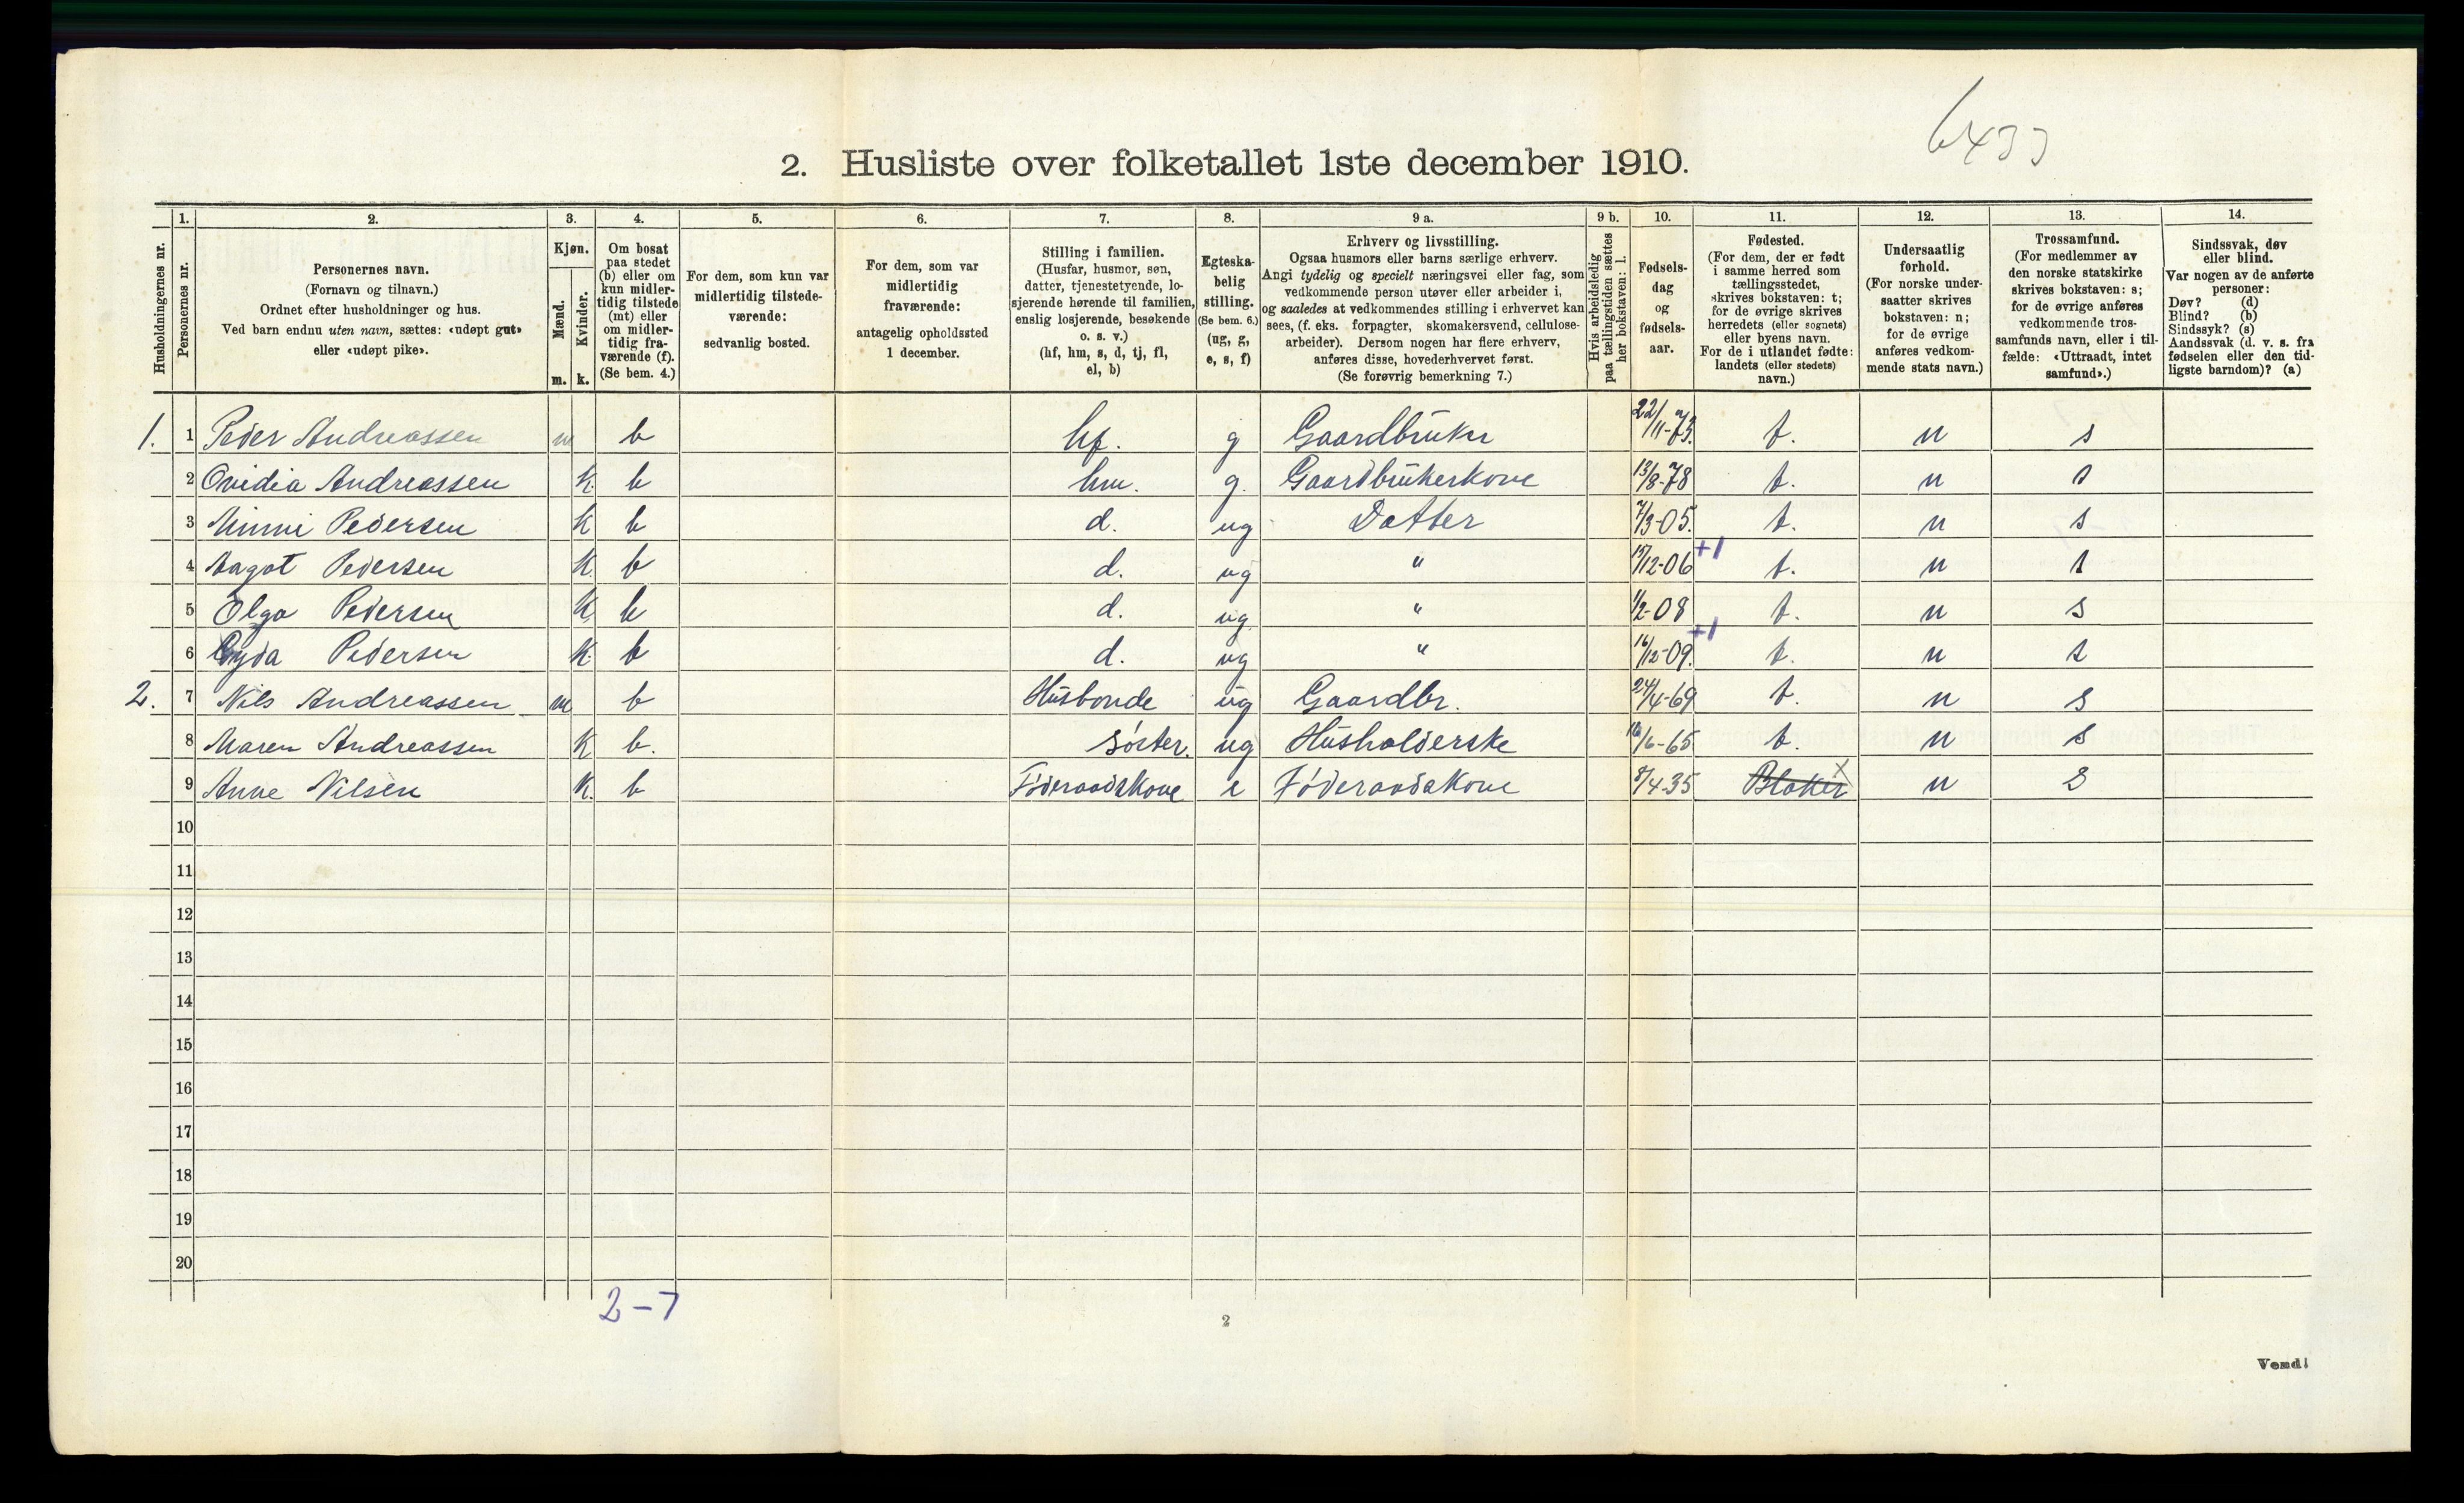 6433
2. Husliste over folketallet 1ste december 1910.
Husholdningernes nr.
1. Personernes nr.
2. Personernes navn.
(Fornavn og tilnavn.)
Ordnet efter husholdninger og hus.
Ved barn endnu uten navn, sættes: «udøpt gut»
eller «udøpt pike».
3. Kjøn.
Mænd. m.
Kvinder. k.
4. Om bosat
paa stedet
(b) eller om
kun midler-
tidig tilstede
(mt) eller
om midler-
tidig fra-
værende (f).
(Se bem. 4.)
5. For dem, som kun var
midlertidig tilstede-
værende:
sedvanlig bosted.
6. For dem, som var
midlertidig
fraværende:
antagelig opholdssted
1 december.
7. Stilling i familien.
(Husfar, husmor, søn,
datter, tjenestetyende, lo-
sjerende hørende til familien,
enslig losjerende, besøkende
o. s. v.)
(hf, hm, s, d, tj, fl,
el, b)
8. Egteska-
belig
stilling.
(Se bem. 6.)
(ug, g,
e, s, f)
9 a. Erhverv og livsstilling.
Ogsaa husmors eller barns særlige erhverv.
Angi tydelig og specielt næringsvei eller fag, som
vedkommende person utøver eller arbeider i,
og saaledes at vedkommendes stilling i erhvervet kan
sees, (f. eks. forpagter, skomakersvend, cellulose-
arbeider). Dersom nogen har flere erhverv,
anføres disse, hovederhvervet først.
(Se forøvrig bemerkning 7.)
9 b. Hvis arbeidsledig
paa tællingstiden sættes
her bokstaven: l.
10. Fødsels-
dag
og
fødsels-
aar.
11. Fødested.
(For dem, der er født
i samme herred som
tællingsstedet,
skrives bokstaven: t;
for de øvrige skrives
herredets (eller sognets)
eller byens navn.
For de i utlandet fødte:
landets (eller stedets)
navn.)
12. Undersaatlig
forhold.
(For norske under-
saatter skrives
bokstaven: n;
for de øvrige
anføres vedkom-
mende stats navn.)
13. Trossamfund.
(For medlemmer av
den norske statskirke
skrives bokstaven: s;
for de øvrige anføres
vedkommende tros-
samfunds navn, eller i til-
fælde: «Uttraadt, intet
samfund».)
14. Sindssvak, døv
eller blind.
Var nogen av de anførte
personer:
Døv? (d)
Blind? (b)
Sindssyk? (s)
Aandssvak (d. v. s. fra
fødselen eller den tid-
ligste barndom)? (a)
1. 1 Peder Andreassen m b hf. g Gaardbruker 22/11-73. t. n s
2 Ovidia Andreassen k. b hm. g. Gaardbrukerkone 13/8-78 t. n s
3 Minni Pedersen k b d. ug Datter 7/3-05. t. n s
4 Aagot Pedersen k. b d. ug " 15/12-06 +1 t. n s
5 Olga Pedersen k b d. ug. " 1/2-08 t. n s
6 Gyda Pedersen k. b d. ug " 16/12-09. +1 t. n s
2. 7 Nils Andreassen m b Husbonde ug Gaardbr. 24/4-69 t. n s
8 Maren Andreassen k b. Søster. ug Husholderske 16/6-65 t. n s
9 Anne Nilsen k. b Føderaadskone e Føderaadskone 8/4-35 Blaker x n s
10
11
12
13
14
15
16
17
18
19
20
2-7
2
Vend!